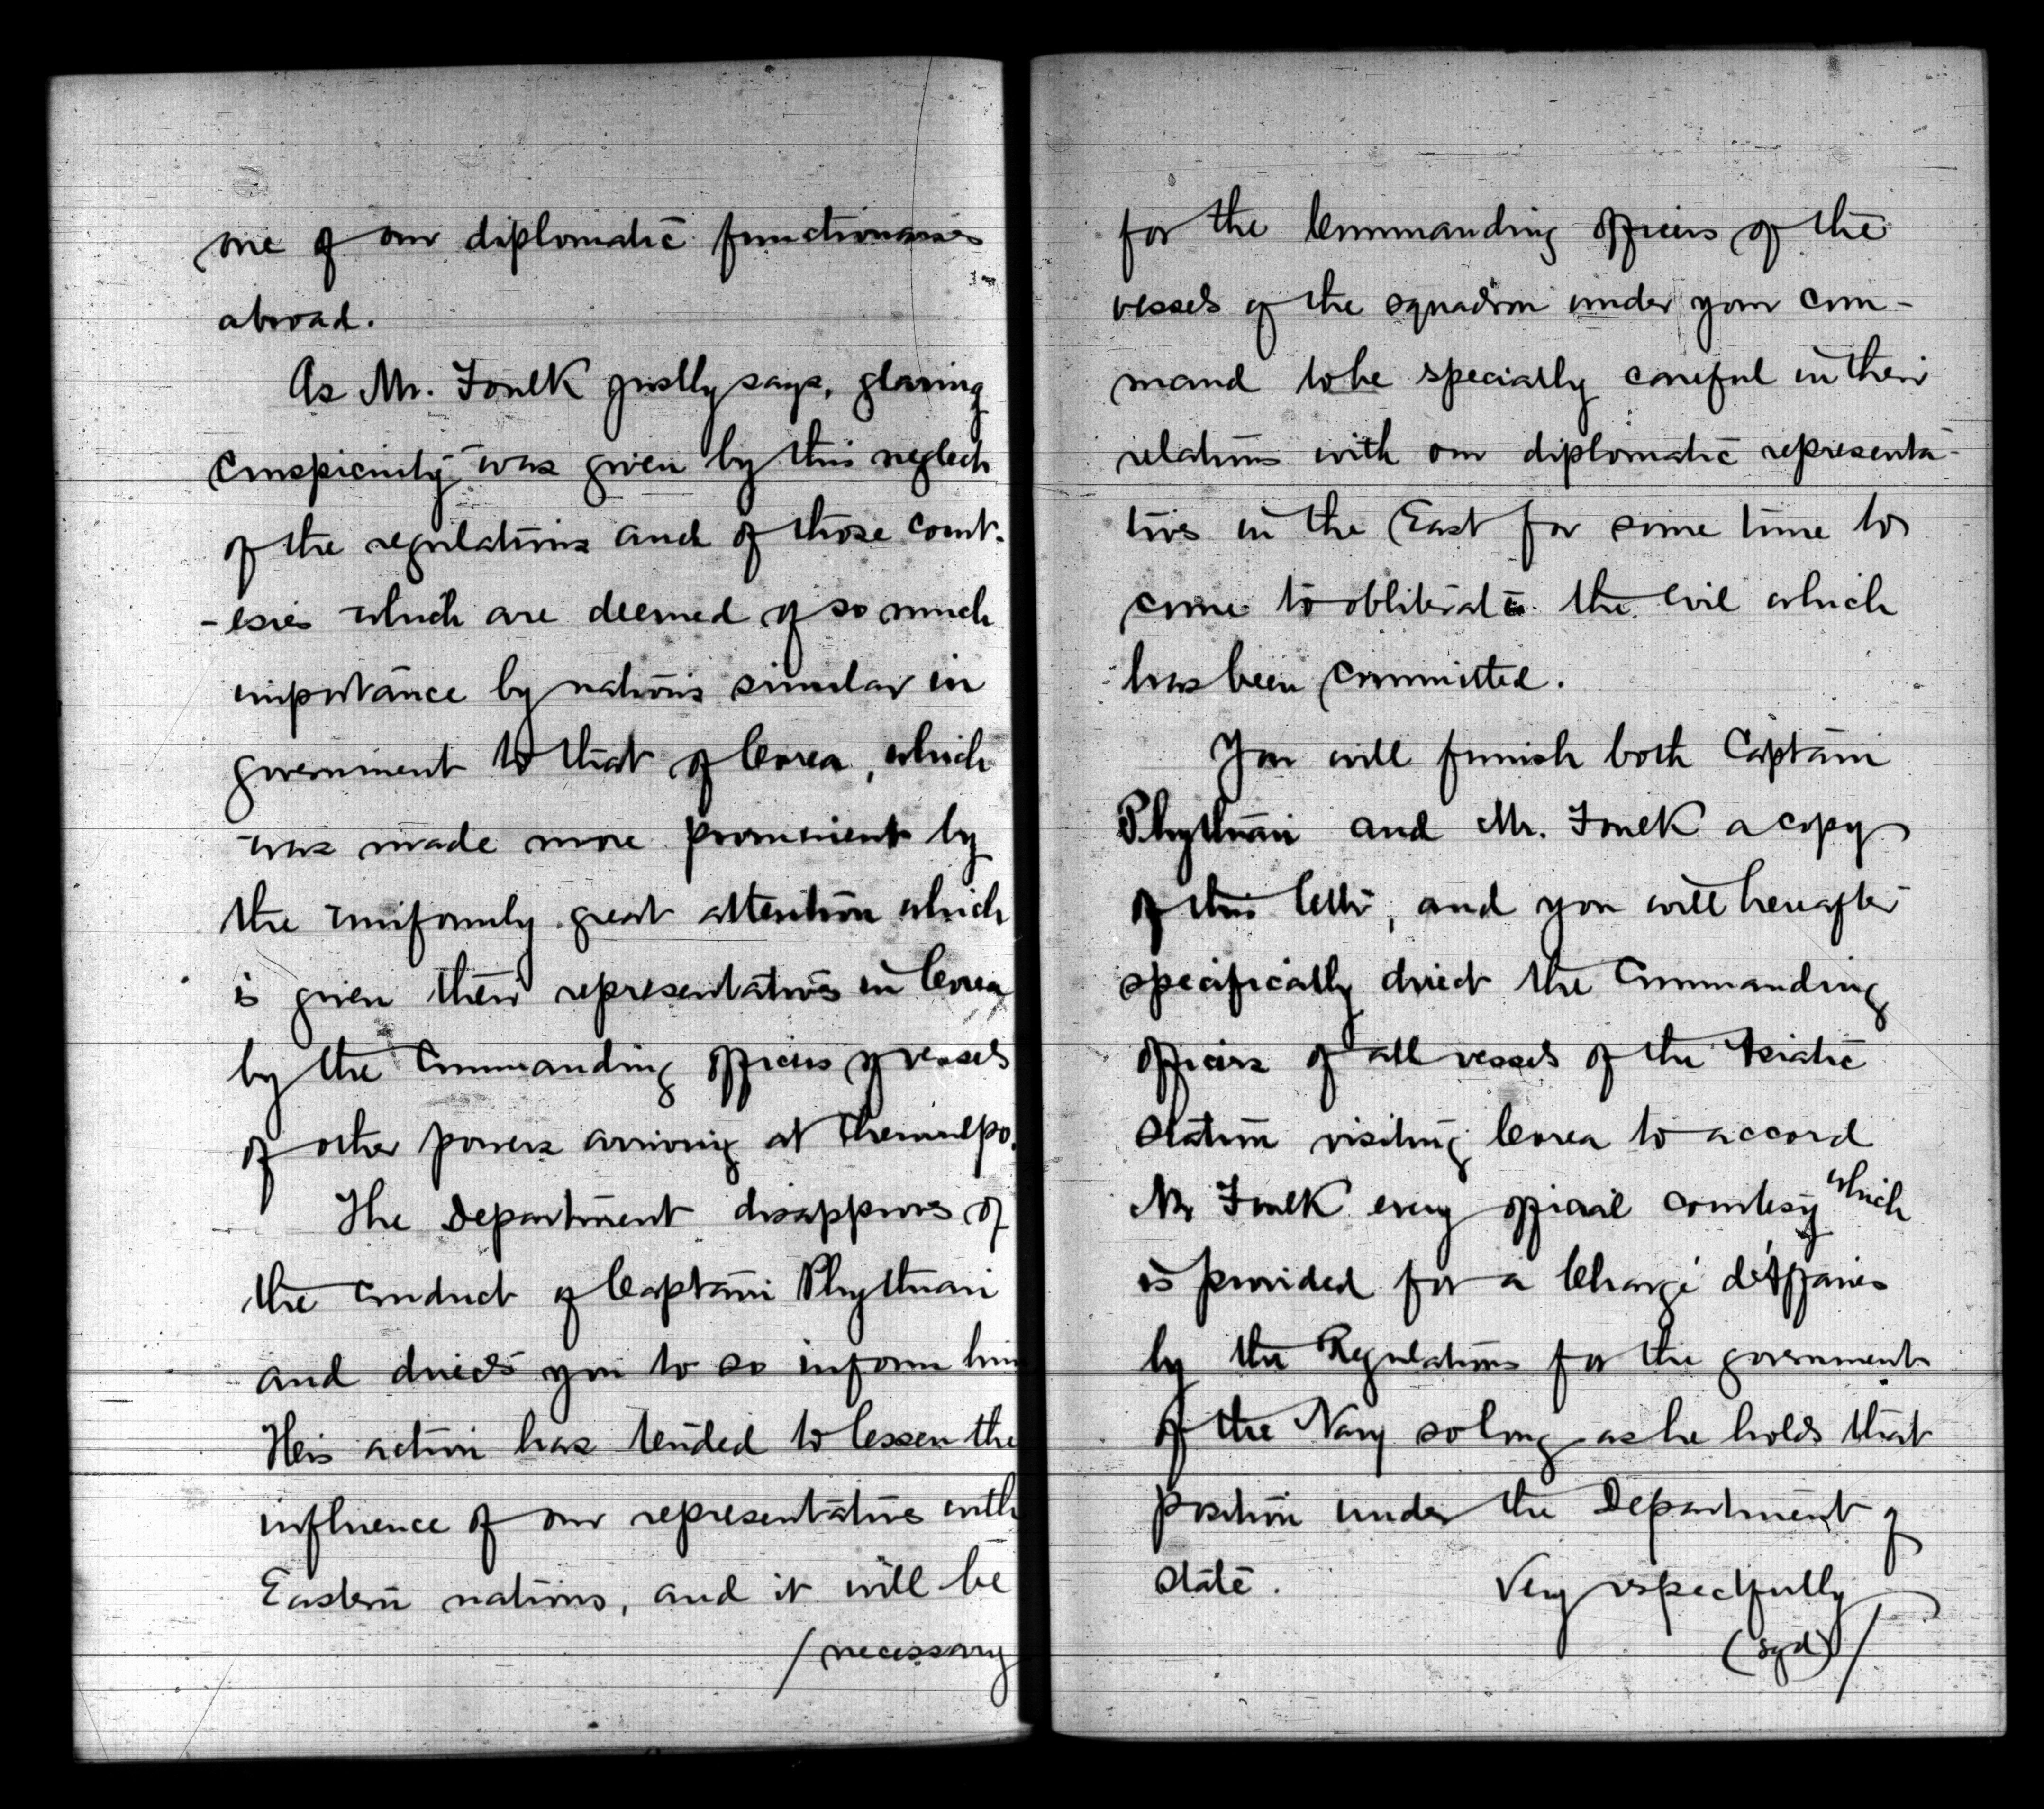 one of our diplomatic functionaries
abroad.
As Mr. Foulk justly says, glaring
conspicuity was given by this neglect
of the regulations and of those court-
-esies which are deemed of so much
importance by nations similar in
government to that of Corea, which
was made more prominent by
the uniformly great attention which
is given their representatives in Corea
by the Commanding officers of vessels
of other powers arriving at Chemulpo.
The Department disapproves of
the conduct of Captain Phythian
and directs you to so inform him
His action has tended to lessen the
influence of our representatives with
Eastern nations, and it will be
/necessary
for the Commanding officers of the
vessels of the squadron under your com-
mand to be specially careful in their
relations with our diplomatic representa-
tives in the East for some time to
come to obliterate the evil which
has been committed.
You will furnish both Captain
Phythian and Mr. Foulk a copy
of this letter, and you will hereafter
specifically direct the Commanding
officers of all vessels of the Asiatic
Station visiting Corea to accord
Mr Foulk every official courtesy which
is provided for a Chargé d'Affaires
by the Regulations for the government
of the Navy so long as he holds that
position under the Department of
State. Very respectfully
(sgd) /